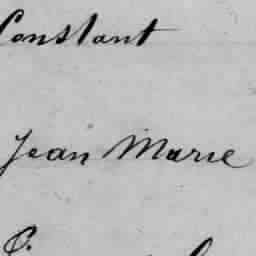 Constant
Jean Marie